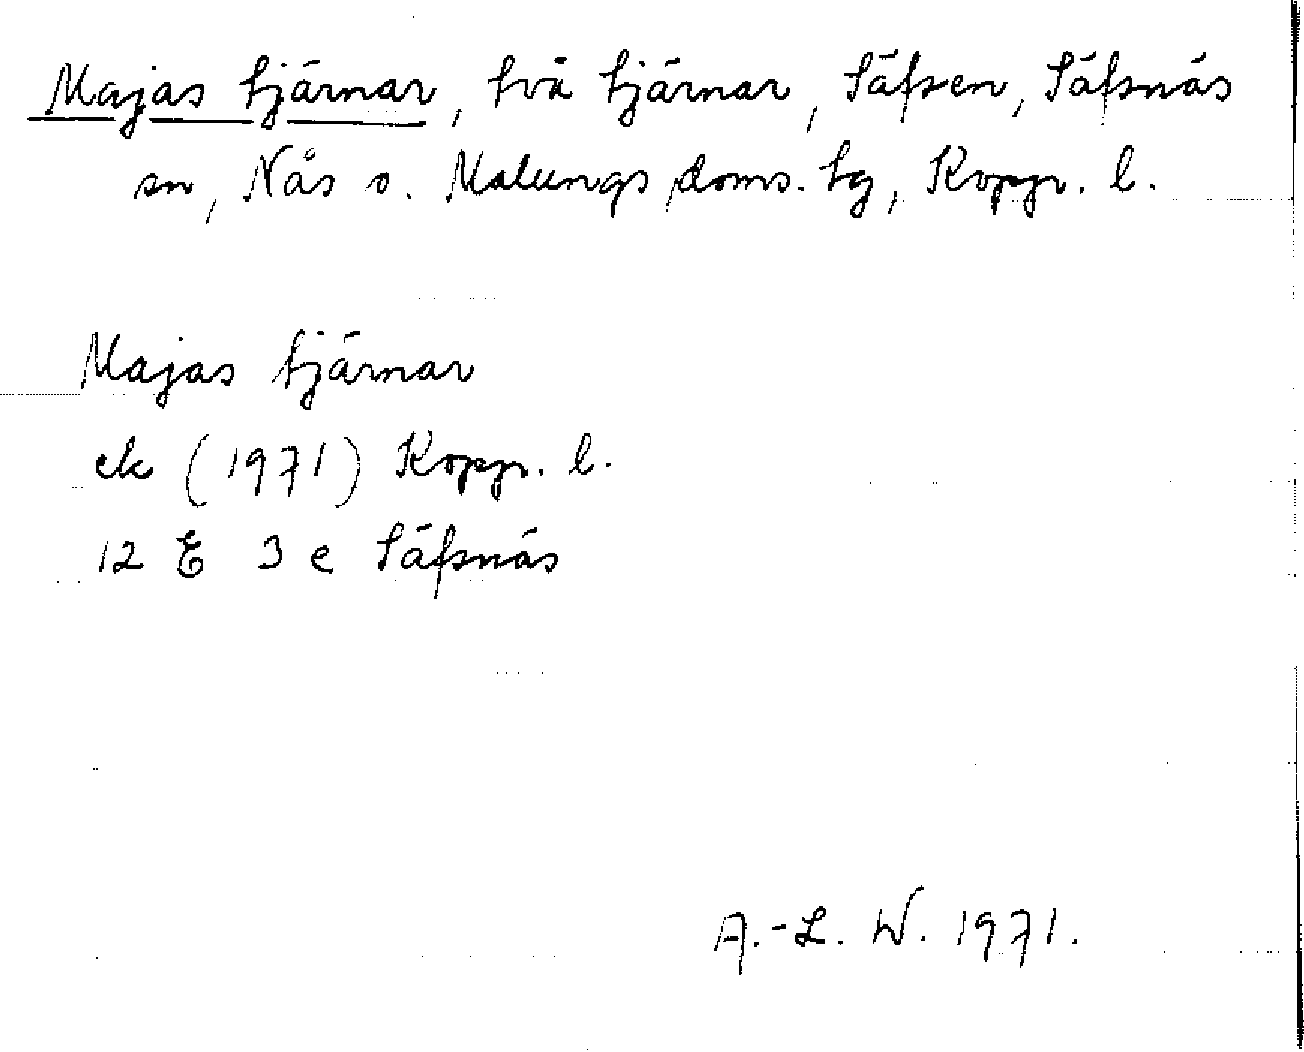 Majas tjärnar, två tjärnar, Säfsen, Säfsnäs
sn, Nås o. Malungs doms. tg, Kopp. l.
Majas tjärnar
ek (1971) Kopp. l.
12 E 3 e Säfsnäs
A.-L. W. 1971.